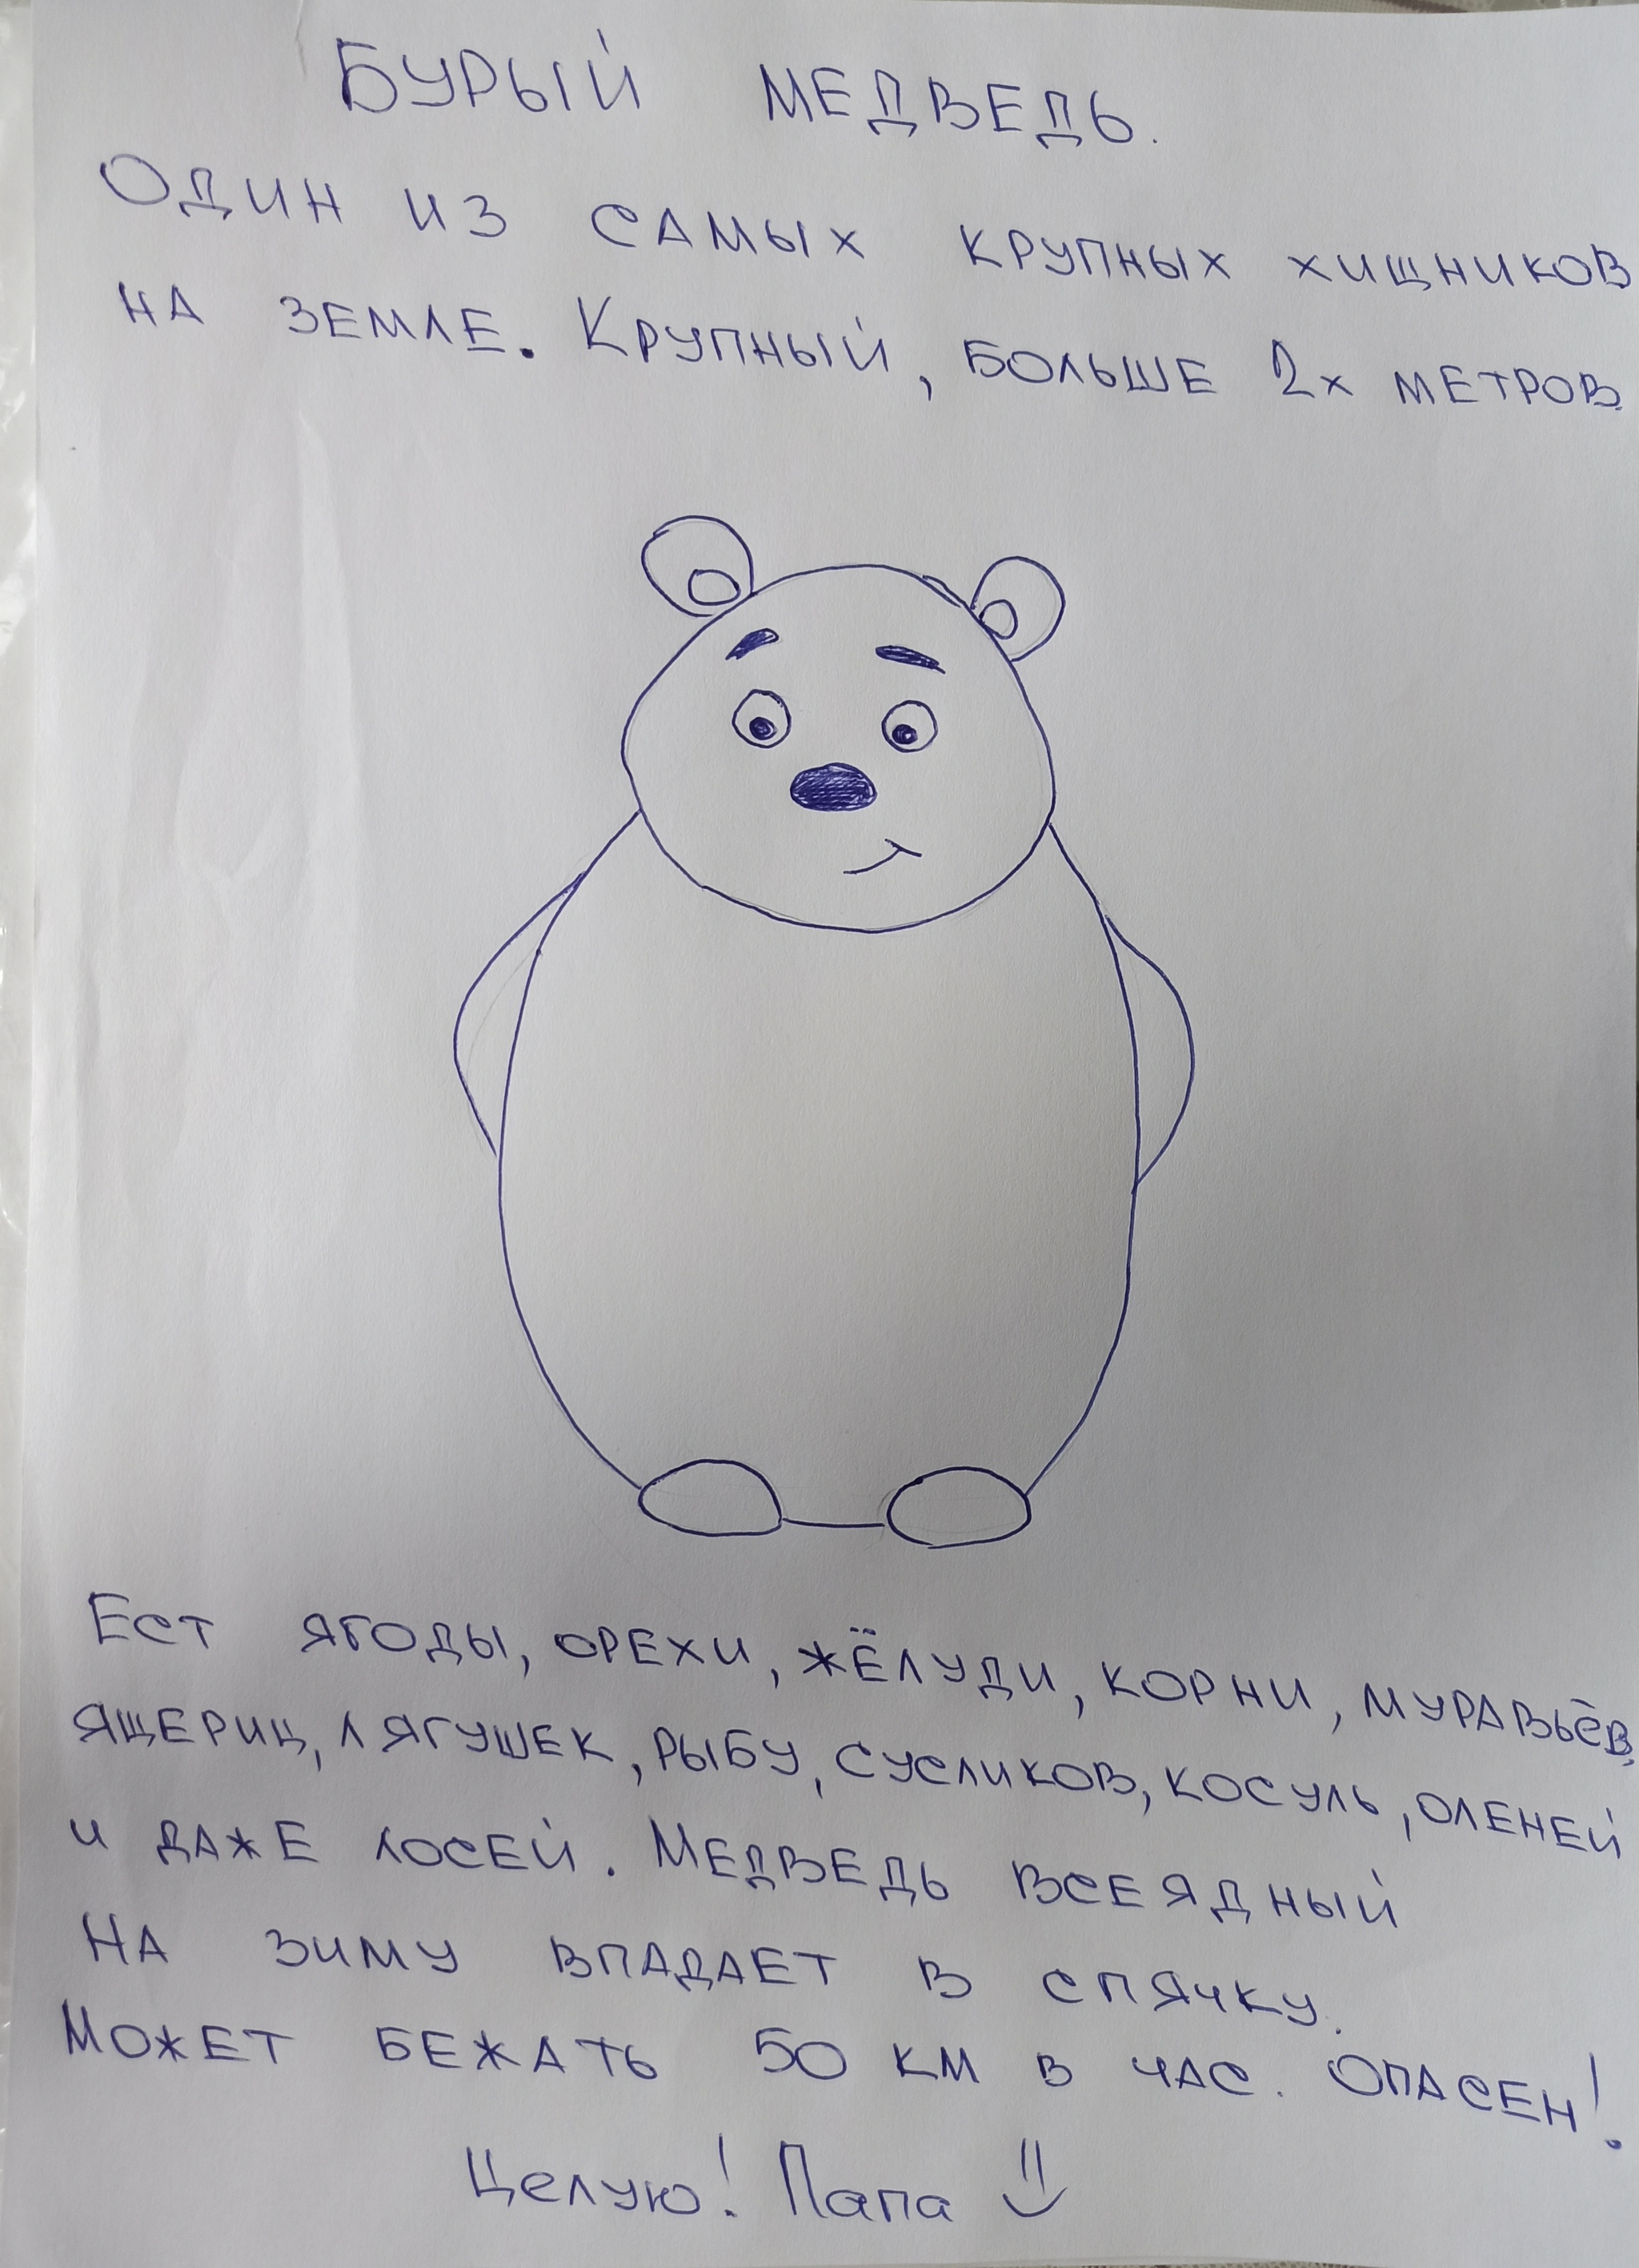 БУРЫЙ МЕДВЕДЬ.
ОДИН ИЗ САМЫХ КРУПНЫХ ХИЩНИКОВ
НА ЗЕМЛЕ. КРУПНЫЙ, БОЛЬШЕ 2х МЕТРОВ.
ЕСТ ЯГОДЫ, ОРЕХИ, ЖЁЛУДИ, КОРНИ, МУРАВЬЁВ,
ЯЩЕРИЦ, ЛЯГУШЕК, РЫБУ, СУСЛИКОВ, КОСУЛЬ, ОЛЕНЕЙ
И ДАЖЕ ЛОСЕЙ. МЕДВЕДЬ ВСЕЯДНЫЙ
НА ЗИМУ ВПАДАЕТ В СПЯЧКУ.
МОЖЕТ БЕЖАТЬ 50 КМ В ЧАС. ОПАСЕН!
Целую! Папа